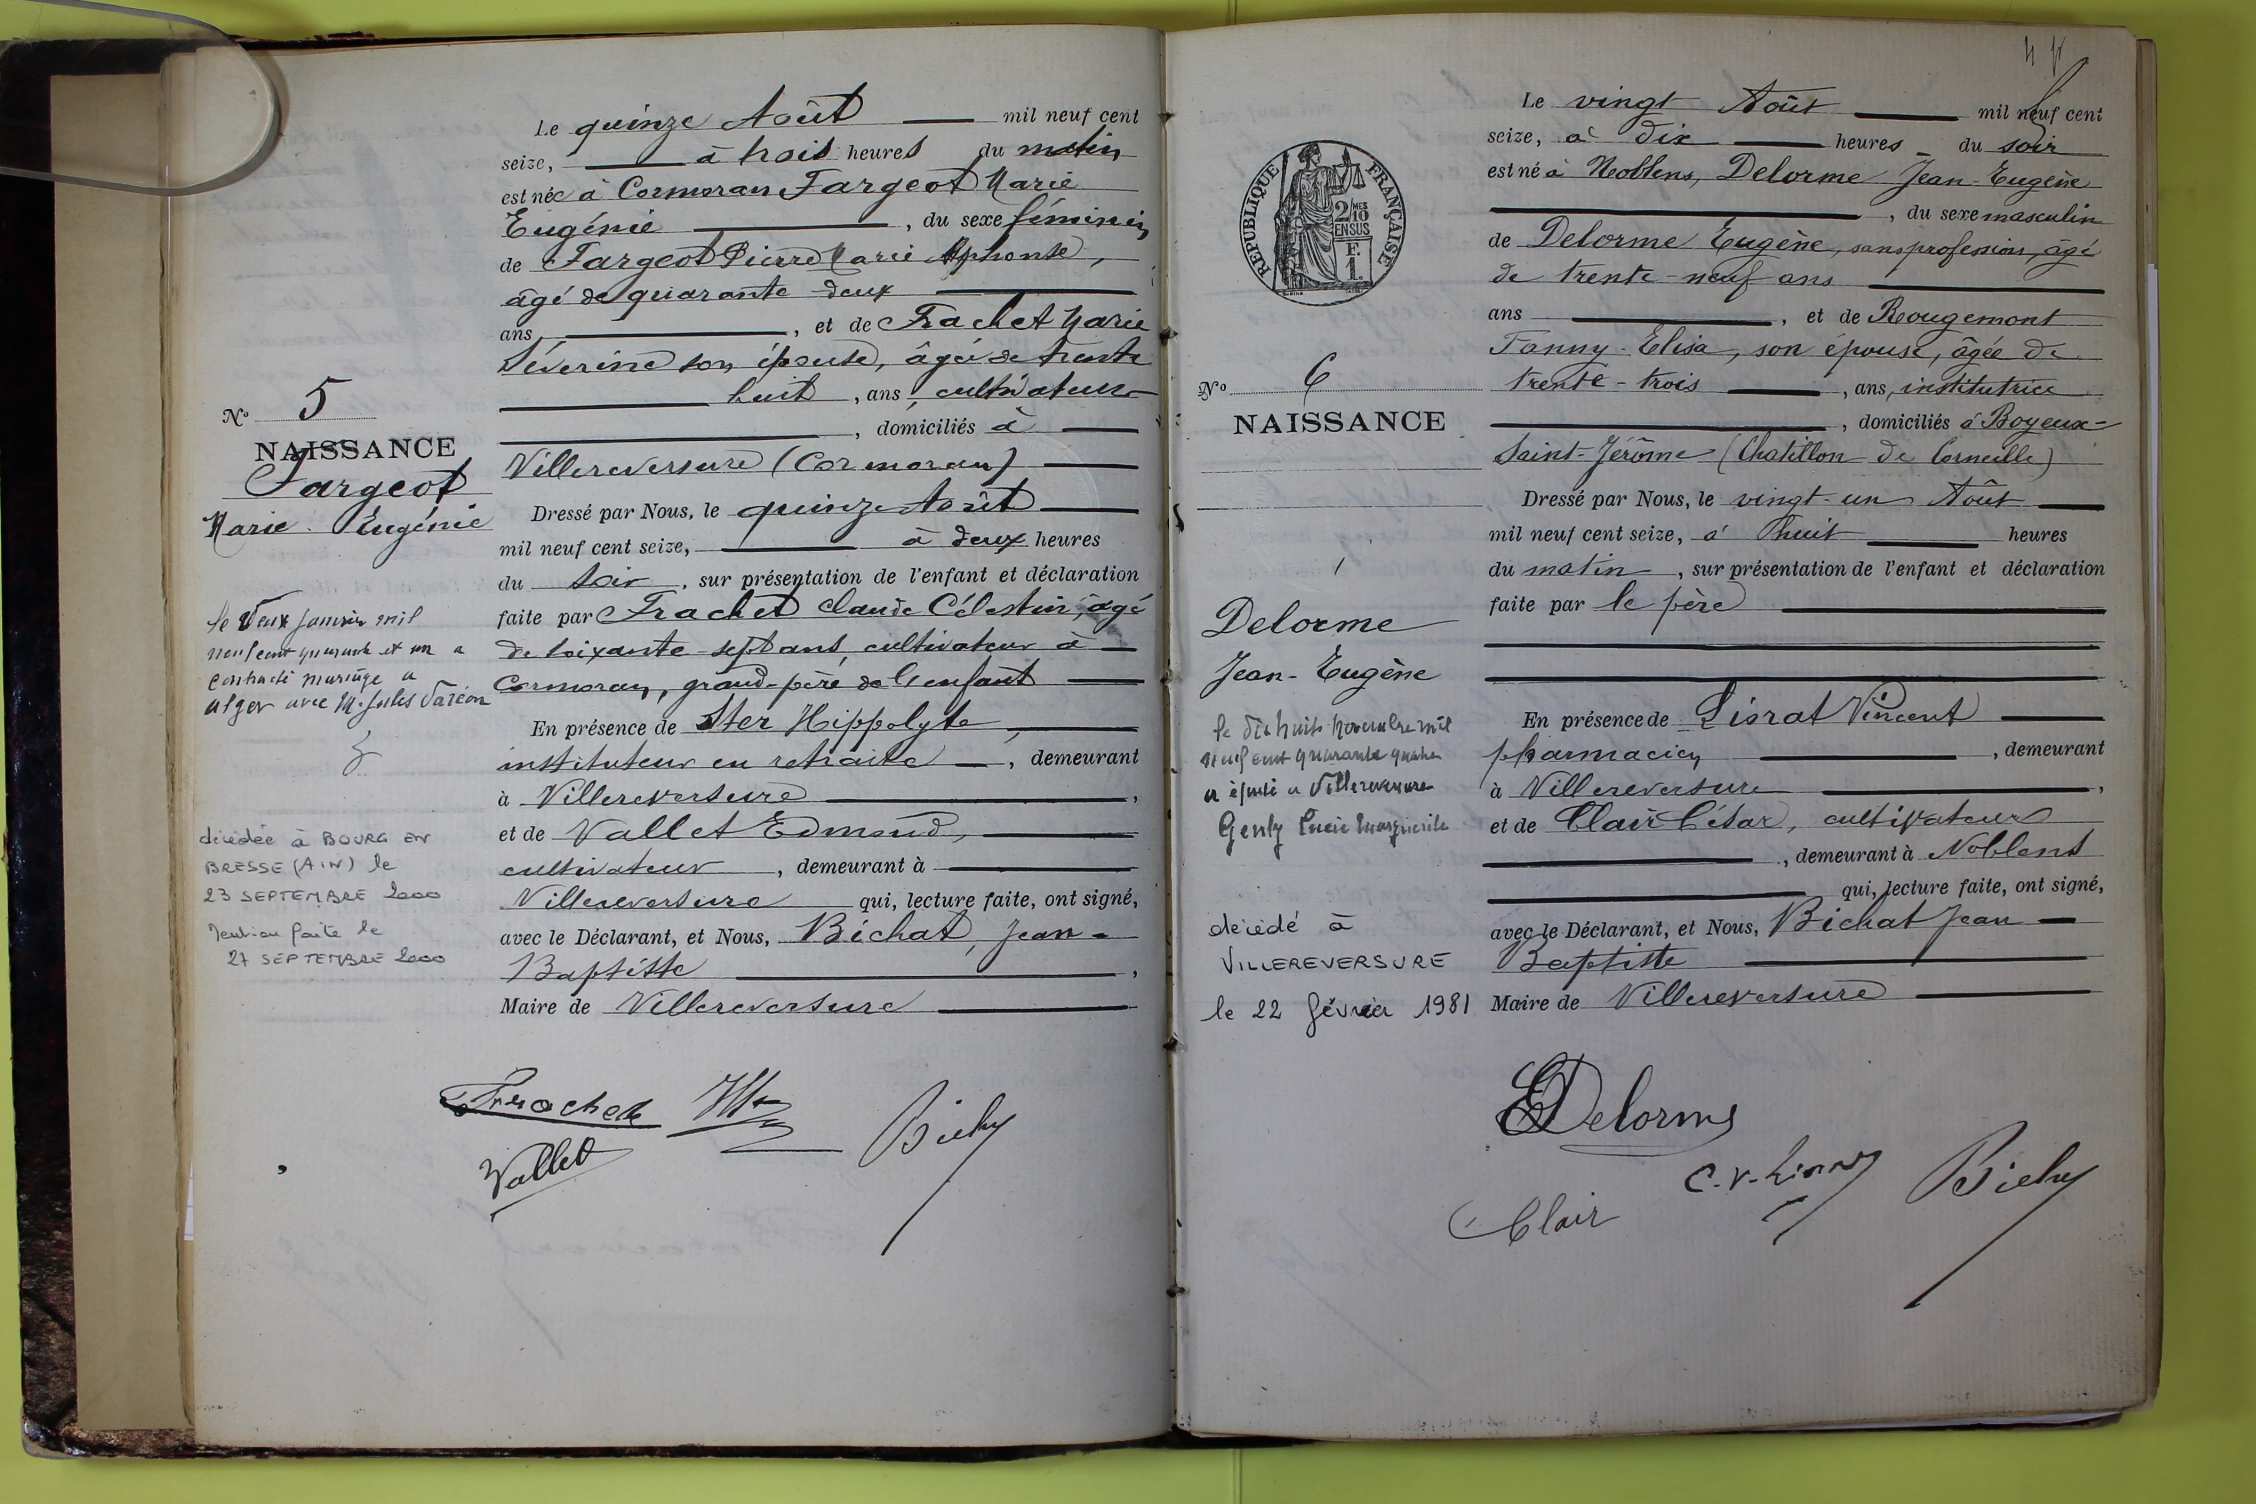 Le quinze Août mil neuf cent
seize, à trois heures du matin
est née à Cormoran Fargeot Marie
Eugénie, du sexe féminin
de Fargeot Pierre Marie Alphonse,
âgé de quarante deux
ans, et de Frachet Marie
Séverine son épouse, âgée de trente
huit, ans, cultivateurs
, domiciliés à
Villereversure (Cormoran)
Dressé par Nous, le quinze Août
mil neuf cent seize, à deux heures
du soir, sur présentation de l'enfant et déclaration
faite par Frachet Claude Célestin, âgé
de soixante sept ans, cultivateur à
Cormoran, grand-père de l'enfant
En présence de Ster Hippolyte,
instituteur en retraite, demeurant
à Villereversure,
et de Vallet Edmond,
cultivateur, demeurant à
Villereversure qui, lecture faite, ont signé,
avec le Déclarant, et Nous, Bichat, Jean-
Baptiste,
Maire de Villereversure
Nº 5
NAISSANCE
Fargeot
Marie Eugénie
le deux janvier mil
neuf cent quarante et un a
contracté mariage a
alger avec M. Jules
décédée à BOURG EN
BRESSE (AIN) le
23 SEPTEMBRE 2000
Mention faite le
27 SEPTEMBRE 2000
Vallet
4
RÉPUBLIQUE FRANÇAISE
2/10 MES
EN SUS
F.
1.
Le vingt Août mil neuf cent
seize, à dix heures du soir
est né à Noblens, Delorme Jean-Eugène
, du sexe masculin
de Delorme Eugène, sans profession, âgé
de trente-neuf ans
ans, et de Rougemont
Fanny-Elisa, son épouse, âgée de
trente-trois, ans, institutrice
, domiciliés à Boyeux-
Saint-Jérôme (Chatillon de Corneille)
Dressé par Nous, le vingt-un Août
mil neuf cent seize, à huit heures
du matin, sur présentation de l'enfant et déclaration
faite par le père
En présence de Liorat Vincent
pharmacien, demeurant
à Villereversure,
et de Clair César, cultivateur
, demeurant à Noblens
qui, lecture faite, ont signé,
avec le Déclarant, et Nous, Bichat Jean
Baptiste
Maire de Villereversure
Nº 6
NAISSANCE
Delorme
Jean-Eugène
le dix huit Novembre mil
neuf cent quarante quatre
a épousé a Villereversure
Genty Lucie Marguerite
décédé à
VILLEREVERSURE
le 22 février 1981
EDelorme
Clair